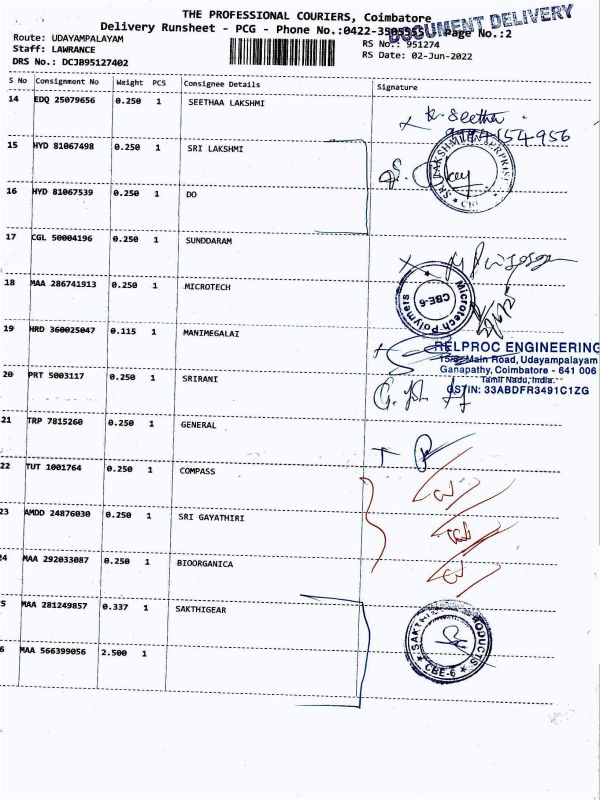 THE PROFESSIONAL COURIERS, Coimbatore
Delivery Runsheet - PCG - Phone No.:0422- Page No.:2
DOCUMENT DELIVERY
Route: UDAYAMPALAYAM
RS No.: 951274
Staff: LAWRANCE
RS Date: 02-Jun-2022
DRS No.: DCJB95127402
S No Consignment No Weight PCS Consignee Details Signature
14 EDQ 25079656 0.250 1 SEETHAA LAKSHMI
R. Seetha
15 HYD 81067498 0.250 1 SRI LAKSHMI
16 HYD 81067539 0.250 1 DO
17 CGL 50004196 0.250 1 SUNDDARAM
18 MAA 286741913 0.250 1 MICROTECH
Microtech Polymers
CBE-6
19 HRD 360025047 0.115 1 MANIMEGALAI
RELPROC ENGINEERING
Main Road, Udayampalayam
Ganapathy, Coimbatore - 641 006
Tamil Nadu, India.
GSTIN: 33ABDFR3491C1ZG
20 PRT 5003117 0.250 1 SRIRANI
21 TRP 7815260 0.250 1 GENERAL
22 TUT 1001764 0.250 1 COMPASS
23 AMDD 24876030 0.250 1 SRI GAYATHIRI
24 MAA 292033087 0.250 1 BIOORGANICA
5 MAA 281249857 0.337 1 SAKTHIGEAR
CBE-6
6 MAA 566399056 2.500 1